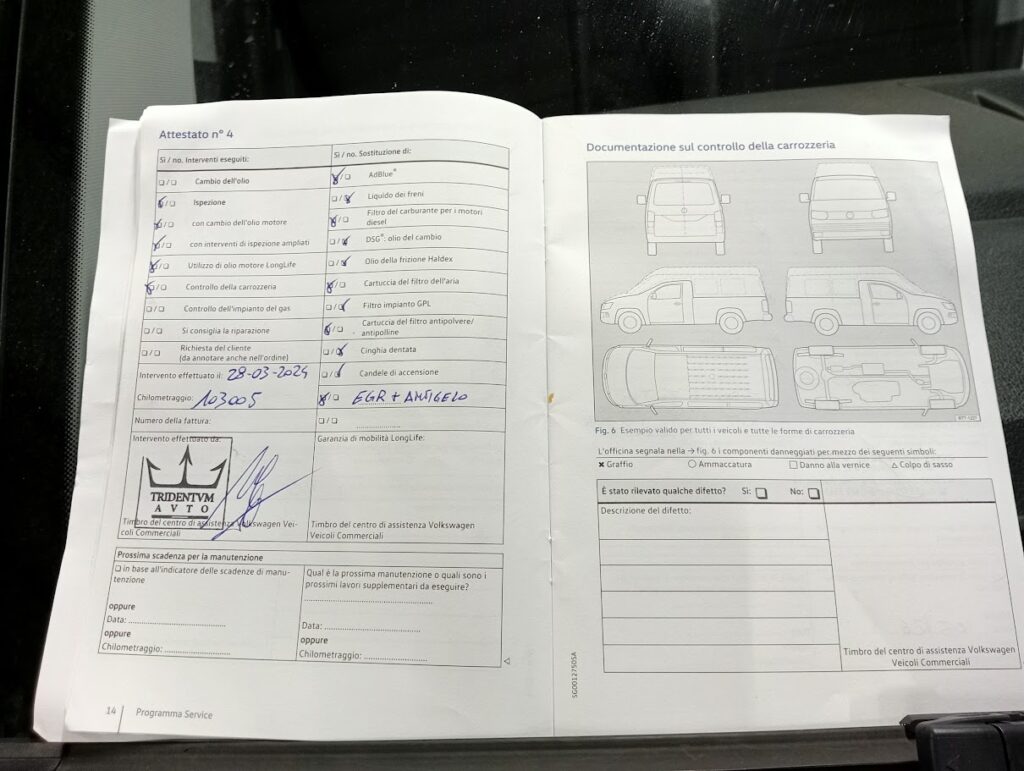 Attestato n° 4
Sì / no. Interventi eseguiti:
Sì / no. Sostituzione di:
Cambio dell'olio
AdBlue®
Ispezione
Liquido dei freni
con cambio dell'olio motore
Filtro del carburante per i motori
diesel
con interventi di ispezione ampliati
DSG®: olio del cambio
Utilizzo di olio motore LongLife
Olio della frizione Haldex
Controllo della carrozzeria
Cartuccia del filtro dell'aria
Controllo dell'impianto del gas
Filtro impianto GPL
Si consiglia la riparazione
Cartuccia del filtro antipolvere/
antipolline
Richiesta del cliente
(da annotare anche nell'ordine)
Cinghia dentata
Intervento effettuato il: 28-03-2024
Candele di accensione
Chilometraggio: 103005
EGR + ANTIGELO
Numero della fattura:
Intervento effettuato da:
Garanzia di mobilità LongLife:
TRIDENTVM
AVTO
Timbro del centro di assistenza Volkswagen Vei-
coli Commerciali
Timbro del centro di assistenza Volkswagen
Veicoli Commerciali
Prossima scadenza per la manutenzione
in base all'indicatore delle scadenze di manu-
tenzione
oppure
Data:
oppure
Chilometraggio:
Qual è la prossima manutenzione o quali sono i
prossimi lavori supplementari da eseguire?
Data:
oppure
Chilometraggio:
14 Programma Service
Documentazione sul controllo della carrozzeria
Fig. 6 Esempio valido per tutti i veicoli e tutte le forme di carrozzeria
L'officina segnala nella → fig. 6 i componenti danneggiati per mezzo dei seguenti simboli:
✖ Graffio ○ Ammaccatura □ Danno alla vernice △ Colpo di sasso
È stato rilevato qualche difetto? Sì: No:
Descrizione del difetto:
Timbro del centro di assistenza Volkswagen
Veicoli Commerciali
SG0012750SA